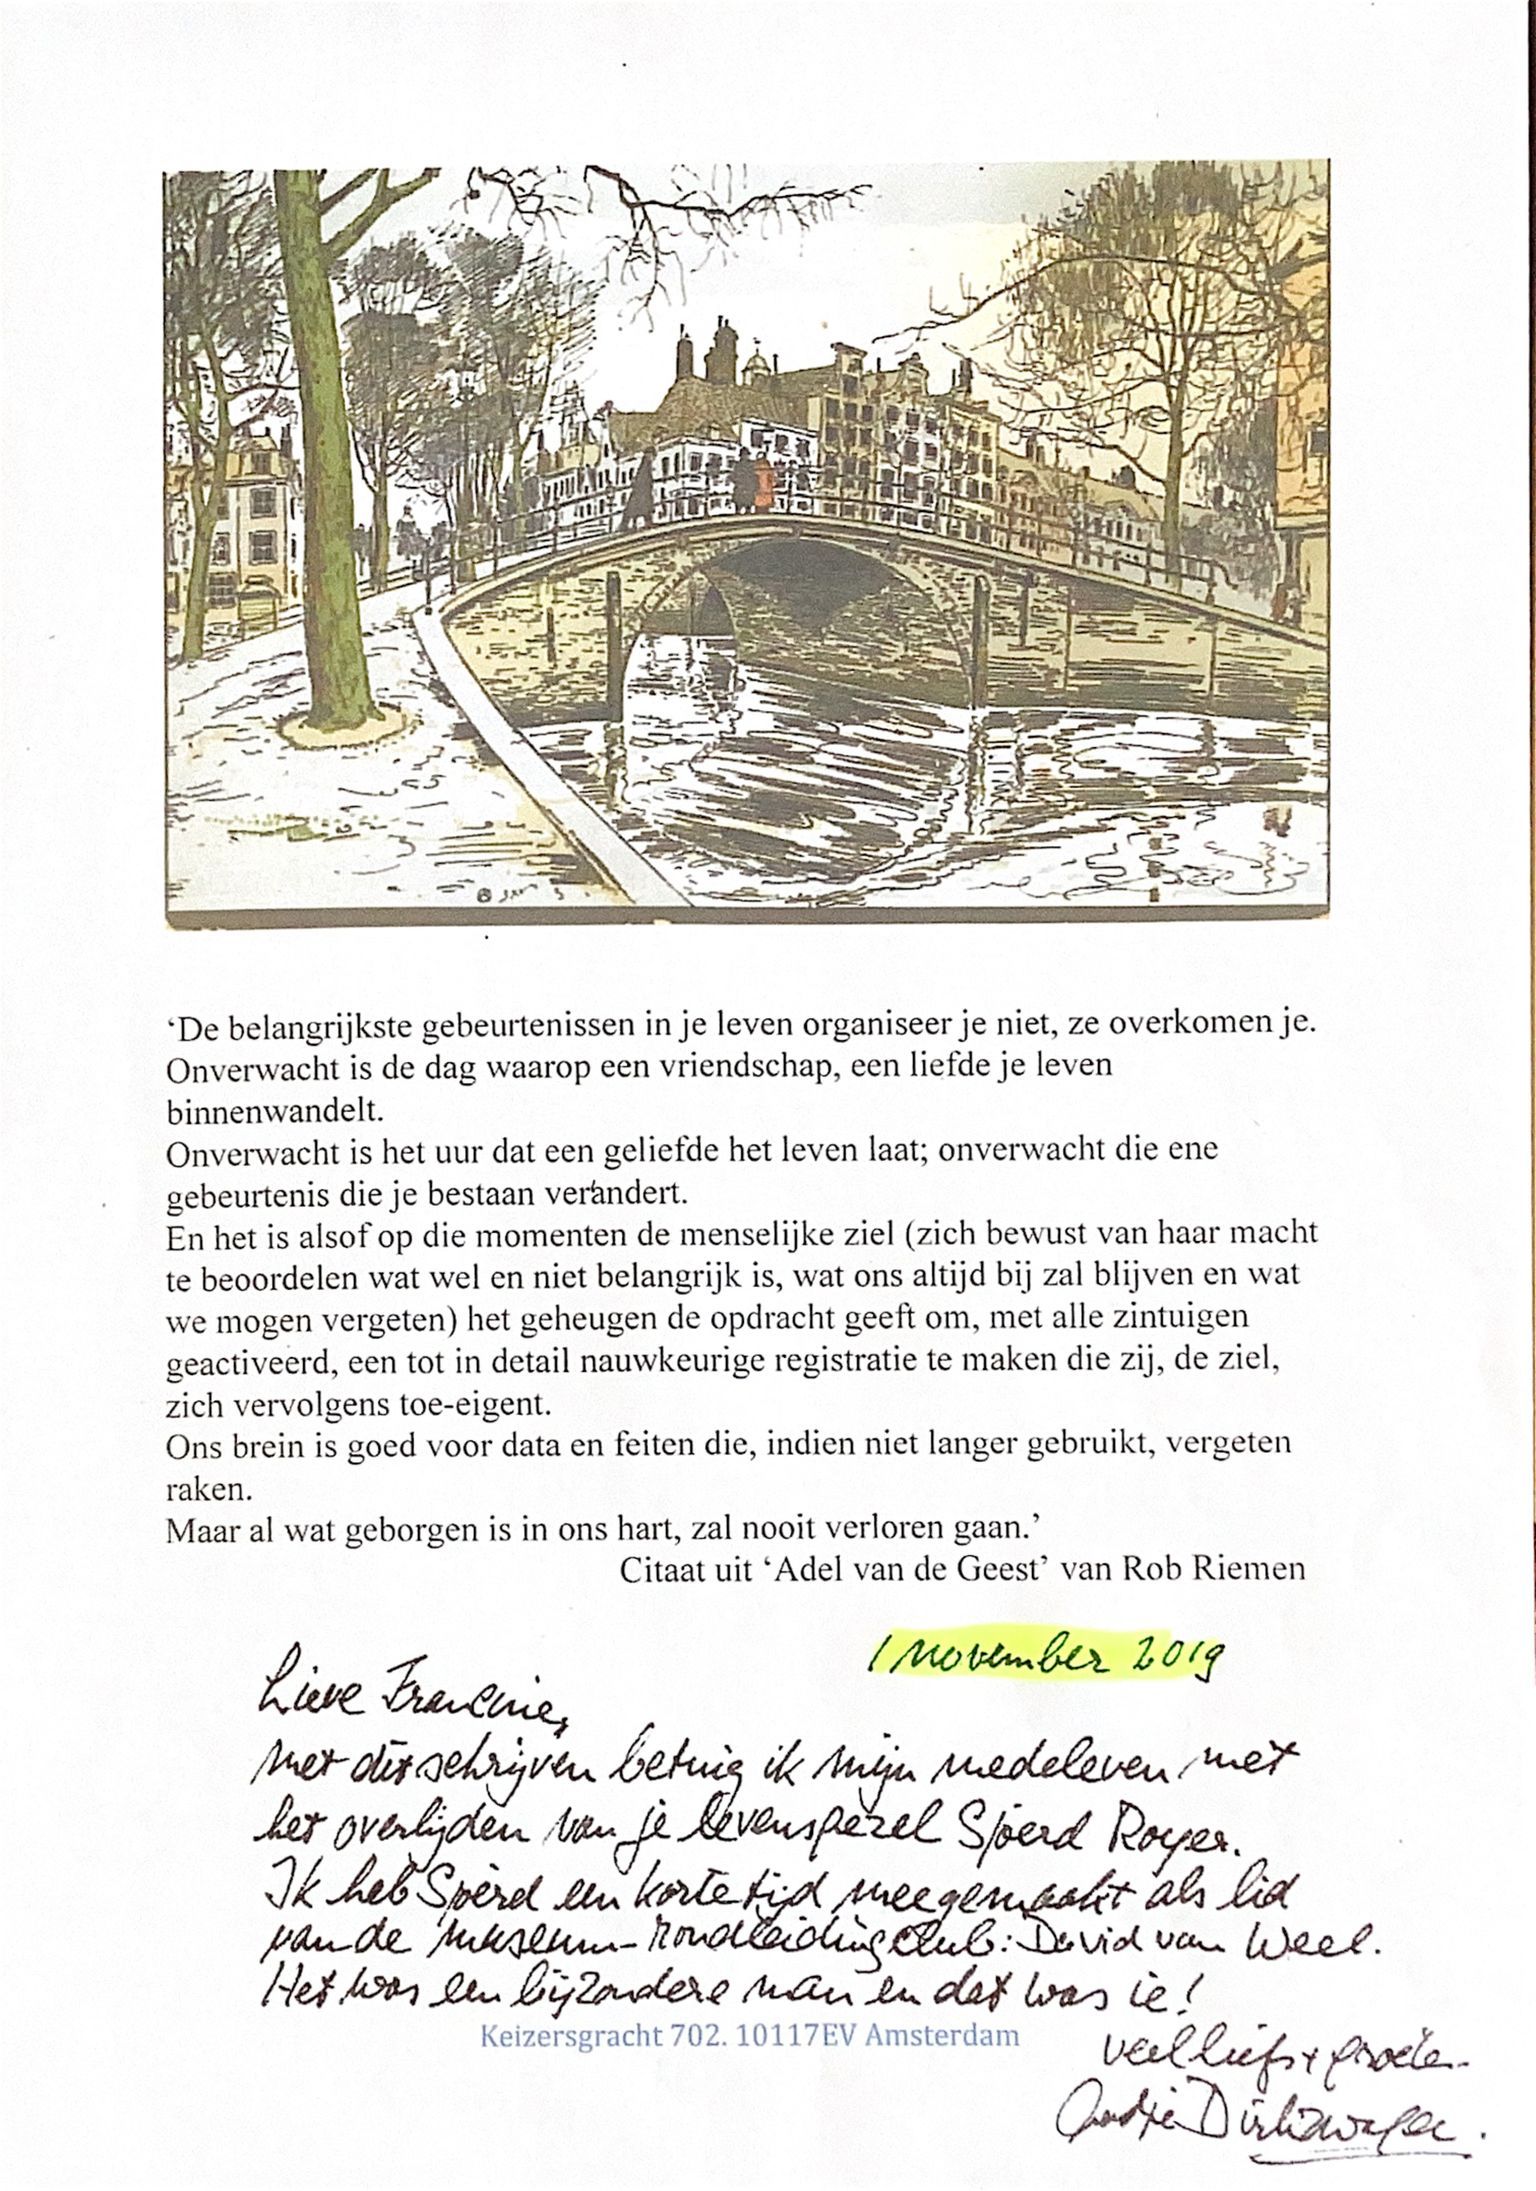 ‘De belangrijkste gebeurtenissen in je leven organiseer je niet, ze overkomen je.
Onverwacht is de dag waarop een vriendschap, een liefde je leven
binnenwandelt.
Onverwacht is het uur dat een geliefde het leven laat; onverwacht die ene
gebeurtenis die je bestaan verandert.
En het is alsof op die momenten de menselijke ziel (zich bewust van haar macht
te beoordelen wat wel en niet belangrijk is, wat ons altijd bij zal blijven en wat
we mogen vergeten) het geheugen de opdracht geeft om, met alle zintuigen
geactiveerd, een tot in detail nauwkeurige registratie te maken die zij, de ziel,
zich vervolgens toe-eigent.
Ons brein is goed voor data en feiten die, indien niet langer gebruikt, vergeten
raken.
Maar al wat geborgen is in ons hart, zal nooit verloren gaan.’
Citaat uit ‘Adel van de Geest’ van Rob Riemen
1 november 2019
Lieve Francine,
Met dit schrijven betuig ik mijn medeleven met
het overlijden van je levensgezel Sjoerd Royer.
Ik heb Sjoerd een korte tijd meegemaakt als lid
van de museum-rondleidingclub: David van Weel.
Het was een bijzondere man en dat was ie!
Keizersgracht 702. 10117EV Amsterdam
veel liefs + groeten
Dirkzwager.